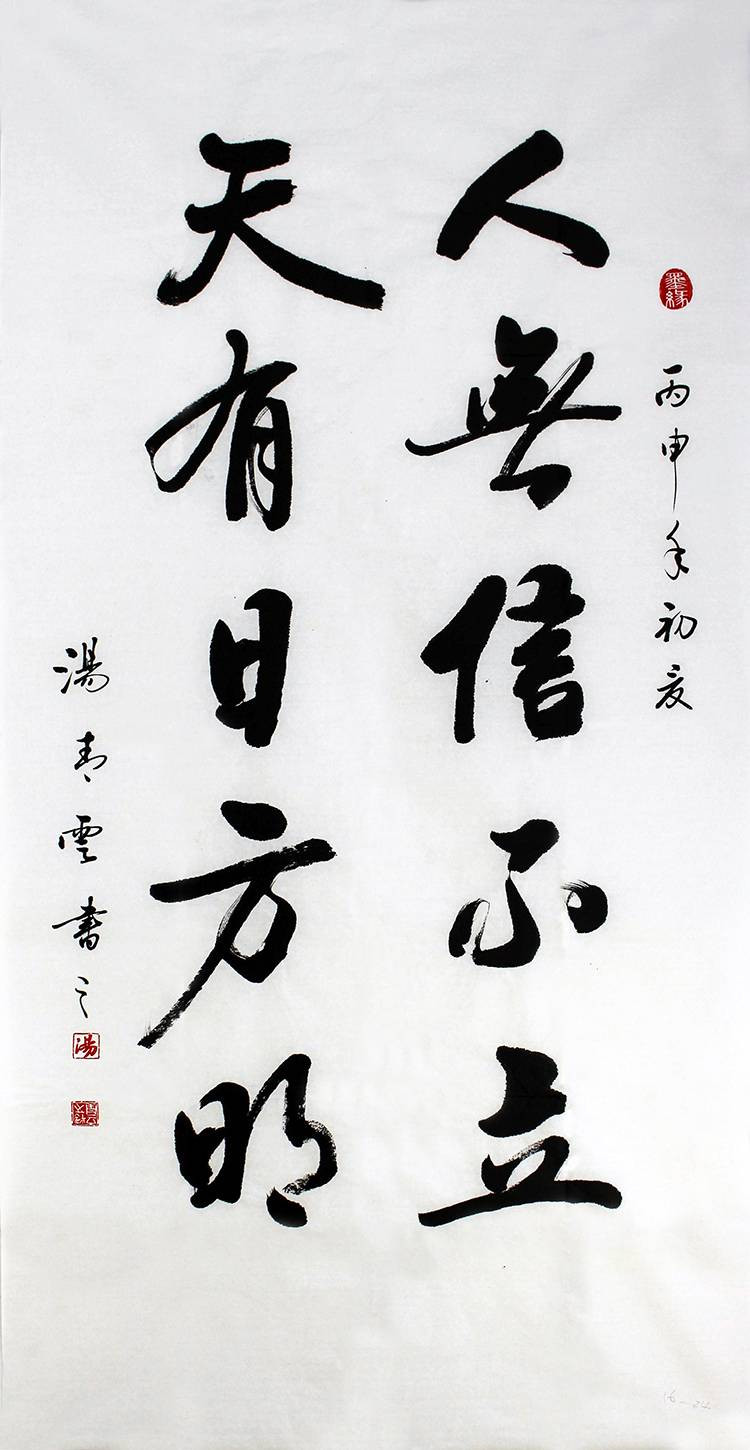 墨緣
丙申年初夏
人無信不立
天有日方明
湯青雲書之
湯
16-24